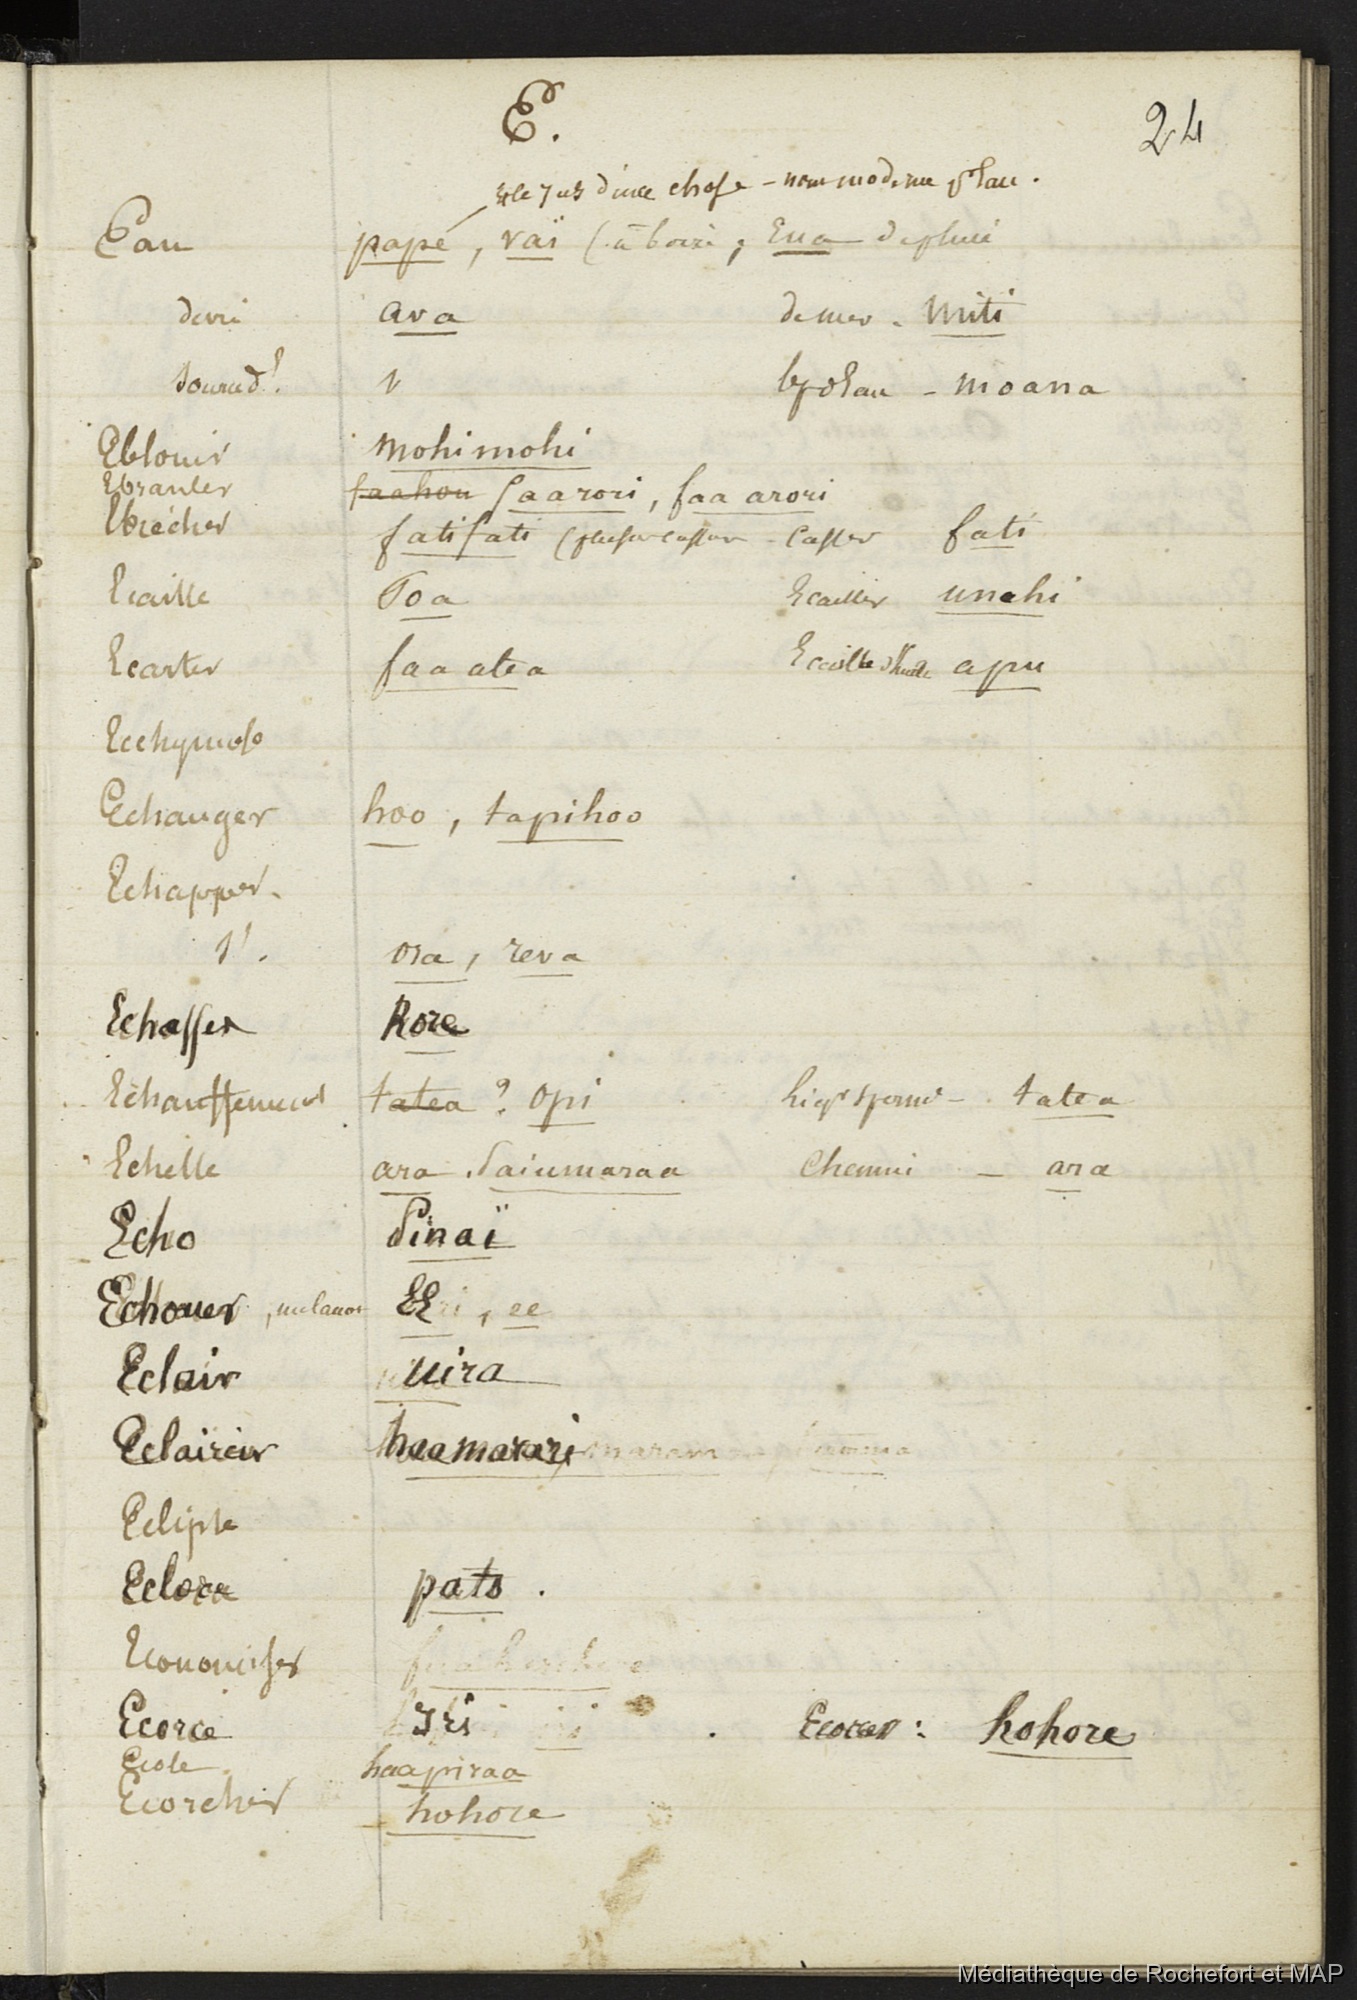 E.
24
le jus d'une chose - nom moderne de l'eau.
Eau papé, vaï (à boire, Eua de pluie
de vie ava de mer - miti
1
de l'eau - moana
Eblouir mohimohi
Ebranler faahou faarori, faa arori
Ebrécher fatifati (plusieurs casser - Casser fati
Ecaille Poa Ecailler unahi
Ecarter faa atea Ecaille d'huitre apu
Ecchymose
Echanger hoo, tapihoo
Echapper.
s'. ora, reva
Echasses Rore
Echauffement tatea ? opi sperme - tatea
Echelle ara, faiumaraa Chemin - ara
Echo Pinaï
Echouer, iri, ee
Eclair uira
Eclaircir haamarari
Eclipse
Eclore pato.
Economiser faaherehere
Ecorce Iri Ecorcer : hohore
Ecole haapiraa
Ecorcher hohore
Médiathèque de Rochefort et MAP